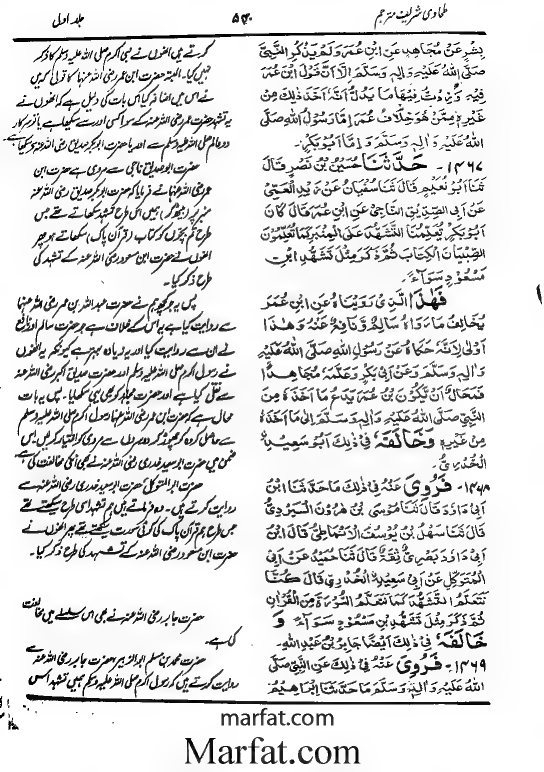 طحاوی شریف مترجم
۵۴۰
جلد اول
بِشْرٍ عَنْ مُجَاهِدٍ عَنِ ابْنِ عُمَرَ وَلَمْ يَذْكُرِ النَّبِيَّ
صَلَّى اللهُ عَلَيْهِ وَاٰلِهٖ وَسَلَّمَ اِلَّا اَنَّ قَوْلَ ابْنِ عُمَرَ
فِيْهِ وَزِدْتُ فِيْهَا مَا يَدُلُّ اَنَّهُ اَخَذَ ذٰلِكَ مِنْ
غَيْرِهٖ مِمَّنْ هُوَ خِلَافُ عُمَرَ اِمَّا رَسُوْلُ اللهِ صَلَّى
اللهُ عَلَيْهِ وَاٰلِهٖ وَسَلَّمَ وَاِمَّا اَبُوْبَكْرٍ۔
۱۴۶۷۔ حَدَّثَنَا حُسَيْنُ بْنُ نَصْرٍ قَالَ
ثَنَا اَبُوْ نُعَيْمٍ قَالَ ثَنَا سُفْيَانُ عَنْ زَيْدٍ الْعَمِّيِّ
عَنْ اَبِي الصِّدِّيْقِ النَّاجِيِّ عَنِ ابْنِ عُمَرَ قَالَ كَانَ
اَبُوْبَكْرٍ يُعَلِّمُنَا التَّشَهُّدَ عَلَى الْمِنْبَرِ كَمَا تُعَلِّمُوْنَ
الصِّبْيَانَ الْكِتَابَ ثُمَّ ذَكَرَ مِثْلَ تَشَهُّدِ ابْنِ
مَسْعُوْدٍ سَوَآءً۔
فَهٰذَا الَّذِيْ رَوَيْنَاهُ عَنِ ابْنِ عُمَرَ
يُخَالِفُ مَا رَوَاهُ سَالِمٌ وَنَافِعٌ عَنْهُ وَهٰذَا
اَوْلٰى لِاَنَّهُ حَكَاهُ عَنْ رَسُوْلِ اللهِ صَلَّى اللهُ عَلَيْهِ
وَاٰلِهٖ وَسَلَّمَ وَعَنْ اَبِيْ بَكْرٍ وَعَلَّمَهُ مُجَاهِدًا
فَمُحَالٌ اَنْ يَّكُوْنَ ابْنُ عُمَرَ يَدَعُ مَا اَخَذَهُ مِنَ
النَّبِيِّ صَلَّى اللهُ عَلَيْهِ وَاٰلِهٖ وَسَلَّمَ اِلٰى مَا اَخَذَهُ
مِنْ غَيْرِهٖ وَخَالَفَهُ فِيْ ذٰلِكَ اَبُوْ سَعِيْدٍ
الْخُدْرِيُّ۔
۱۴۶۸۔ فَرُوِيَ عَنْهُ فِيْ ذٰلِكَ مَا حَدَّثَنَا ابْنُ
اَبِيْ دَاوٗدَ قَالَ ثَنَا مُوْسَى بْنُ هٰرُوْنَ الْبُرْدِيُّ
قَالَ ثَنَا سَهْلُ بْنُ يُوْسُفَ الْاَنْمَاطِيُّ قَالَ ابْنُ
اَبِيْ دَاوٗدَ بَصْرِيٌّ ثِقَةٌ قَالَ ثَنَا حُمَيْدٌ عَنْ اَبِي
الْمُتَوَكِّلِ عَنْ اَبِيْ سَعِيْدٍ الْخُدْرِيِّ قَالَ كُنَّا
نَتَعَلَّمُ التَّشَهُّدَ كَمَا نَتَعَلَّمُ السُّوْرَةَ مِنَ الْقُرْاٰنِ
ثُمَّ ذَكَرَ مِثْلَ تَشَهُّدِ بْنِ مَسْعُوْدٍ سَوَآءً وَ
خَالَفَهُ فِيْ ذٰلِكَ اَيْضًا جَابِرُ بْنُ عَبْدِ اللهِ۔
۱۴۶۹۔ فَرُوِيَ عَنْهُ فِيْ ذٰلِكَ عَنِ النَّبِيِّ صَلَّى
اللهُ عَلَيْهِ وَاٰلِهٖ وَسَلَّمَ مَا حَدَّثَنَا اِبْرَاهِيْمُ
کرتے ہیں انھوں نے نبی اکرم صلی اللہ علیہ وسلم کا ذکر
نہیں کیا۔ البتہ حضرت ابن عمر رضی اللہ عنہما کا قول کہ میں
نے اس میں اضافہ کیا اس بات کی دلیل ہے کہ انھوں نے
یہ تشہد حضرت عمر رضی اللہ عنہ کے سوا کسی اور سے سیکھا ہے یا تو سرکار
دو عالم صلی اللہ علیہ وسلم سے اور یا حضرت ابوبکر صدیق رضی اللہ عنہ سے سیکھا ہے۔
حضرت ابو صدیق ناجی سے مروی ہے حضرت ابن
عمر رضی اللہ عنہما نے فرمایا کہ حضرت ابوبکر صدیق رضی اللہ عنہ
منبر پر (بیٹھ کر) ہمیں اس طرح تشہد سکھاتے تھے جس
طرح تم بچوں کو کتاب (قرآن پاک) سکھاتے ہو پھر
انھوں نے حضرت ابن مسعود رضی اللہ عنہ کے تشہد کی
طرح ذکر کیا۔
پس یہ جو کچھ ہم نے حضرت عبداللہ بن عمر رضی اللہ عنہما
سے روایت کیا ہے یہ اس کے خلاف ہے جو حضرت سالم اور نافع
نے ان سے روایت کیا اور یہ زیادہ بہتر ہے کیونکہ یہ انھوں
نے رسول اکرم صلی اللہ علیہ وسلم اور حضرت صدیق اکبر رضی اللہ عنہ
سے نقل کیا ہے اور حضرت مجاہد کو بھی یہی سکھایا۔ پس یہ بات
محال ہے کہ حضرت ابن عمر رضی اللہ عنہما رسول اکرم صلی اللہ علیہ وسلم
سے حاصل کردہ کو چھوڑ کر دوسروں سے مروی کو اختیار کریں، اس
ضمن میں حضرت ابو سعید خدری رضی اللہ عنہ نے بھی انکی مخالفت کی ہے
حضرت ابوالمتوکل حضرت ابو سعید خدری رضی اللہ عنہ سے
روایت کرتے ہیں۔ وہ فرماتے ہیں ہم تشہد اسی طرح سیکھتے تھے
جس طرح ہم قرآن پاک کی کوئی سورت سیکھتے تھے پھر انھوں نے
حضرت ابن مسعود رضی اللہ عنہ کے تشہد کی طرح ذکر کیا۔
حضرت جابر رضی اللہ عنہ نے بھی اس سلسلے میں مخالفت
کی ہے۔
حضرت محمد بن مسلم ابوالزبیر، حضرت جابر رضی اللہ عنہ سے
روایت کرتے ہیں کہ رسول اکرم صلی اللہ علیہ وسلم ہمیں تشہد اس
marfat.com
Marfat.com